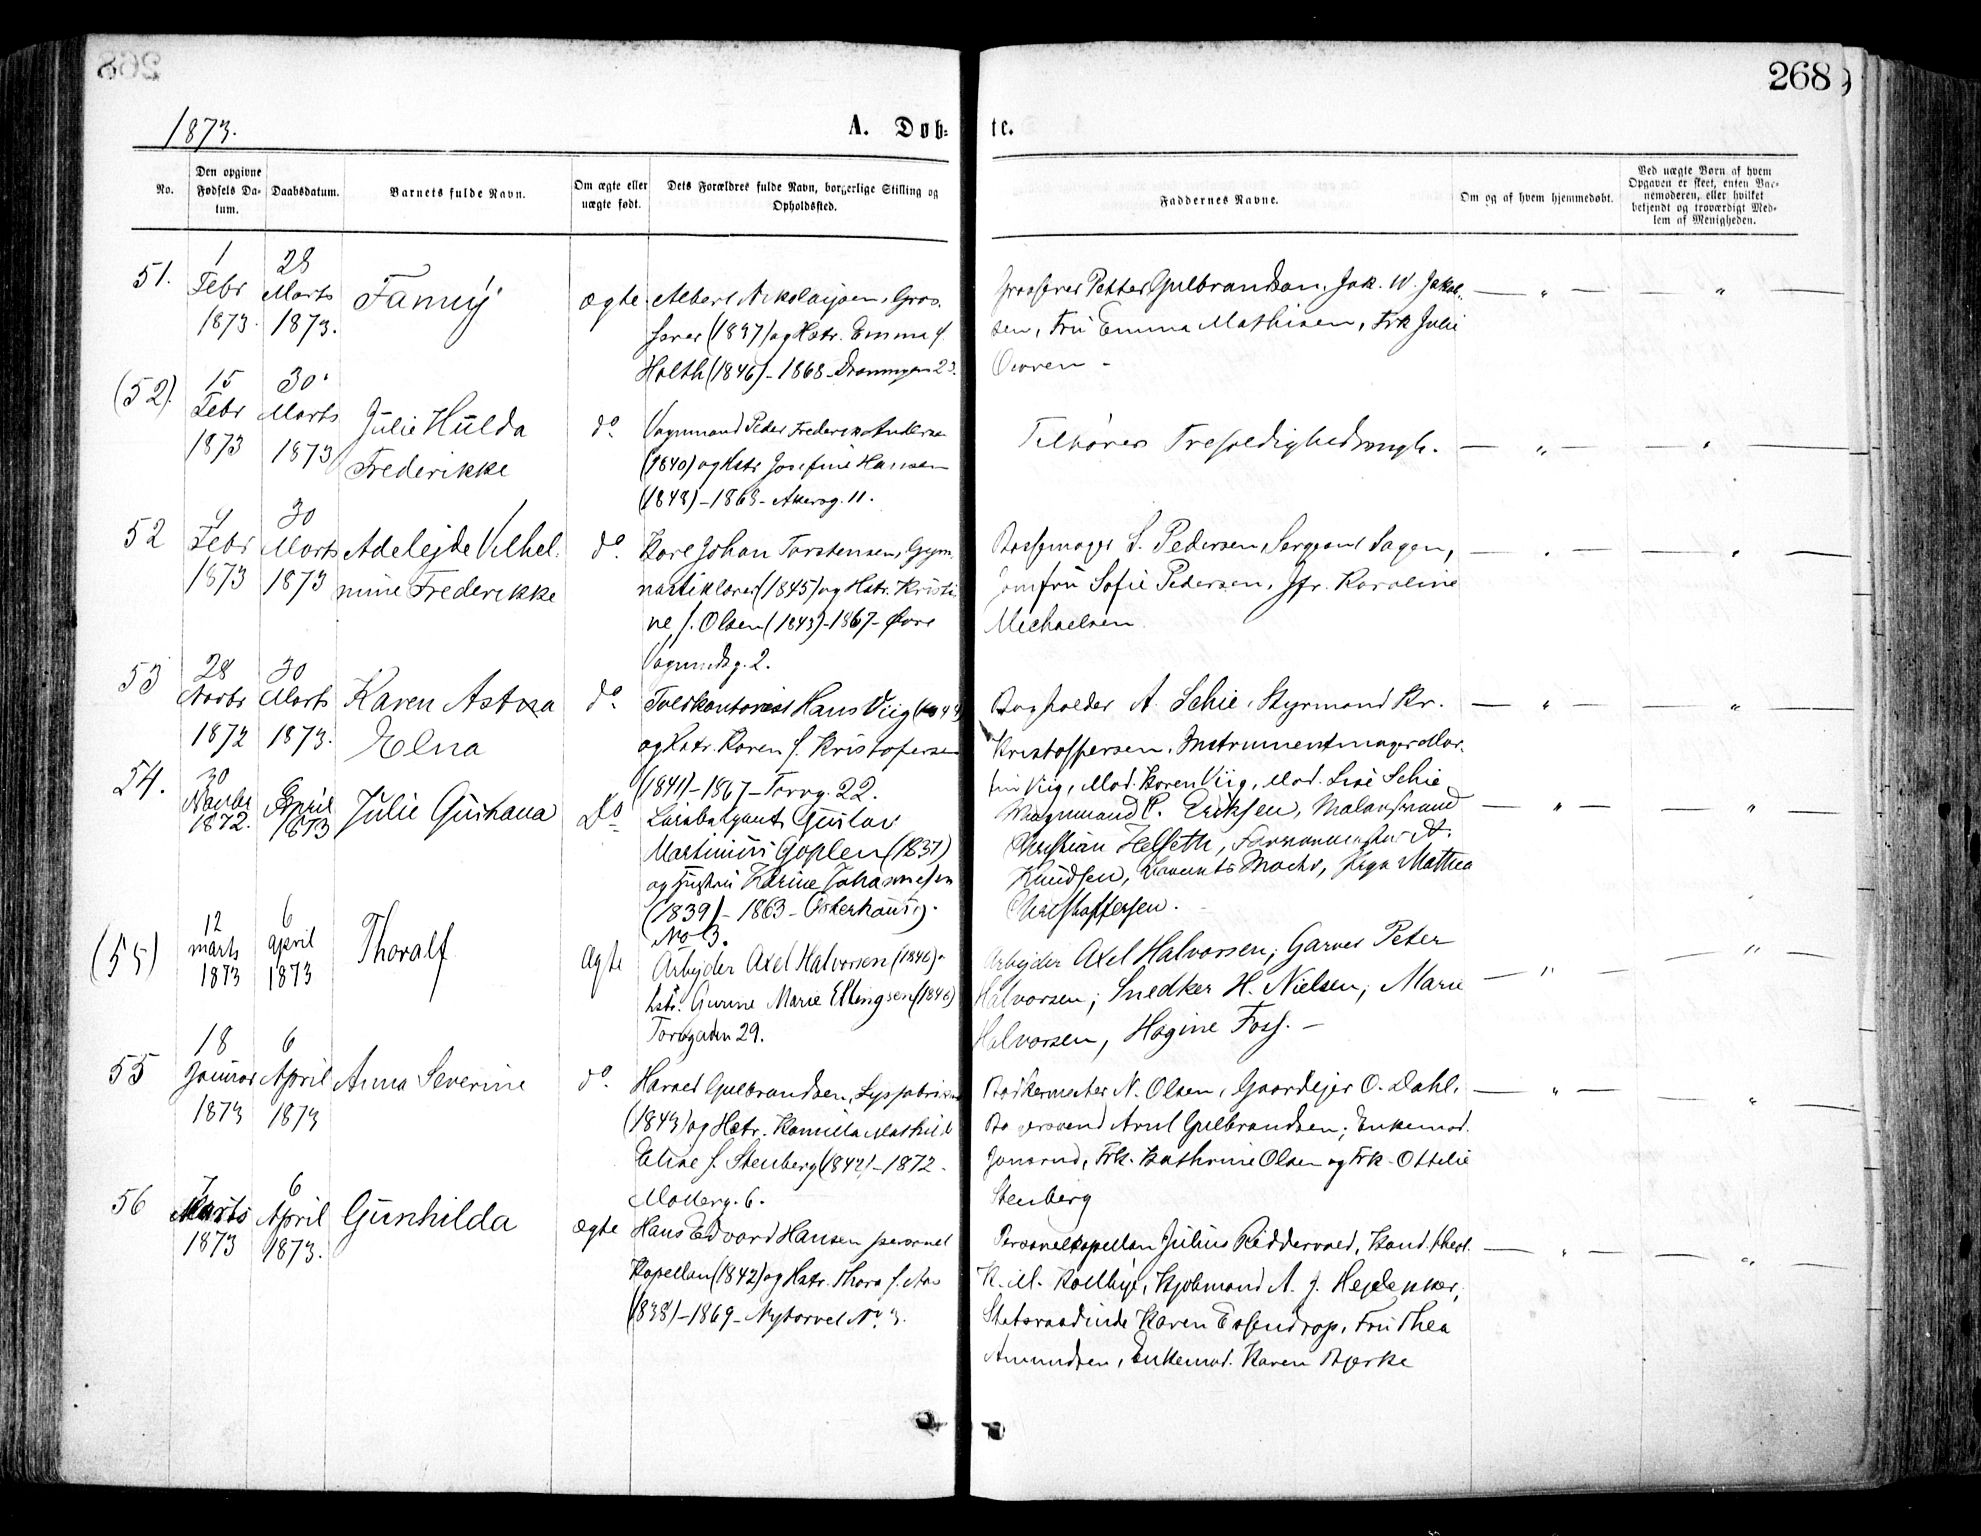 268
1873.
A. Døb-
te.
No.
Den opgivne
Fødsels Da-
tum.
Daabsdatum.
Barnets fulde Navn.
Om ægte eller
uægte født.
Dets Forældres fulde Navn, borgerlige Stilling og
Opholdssted.
Faddernes Navne.
Om og af hvem hjemmedøbt.
Ved uægte Børn af hvem
Opgaven er skeet, enten Bar-
nemoderen, eller hvilket
bekjendt og troværdigt Med-
lem af Menigheden.
51.
1
Febr
1873.
28
Marts
1873.
Fanny
ægte
Albert Nikolaysen, Gros-
serer (1837) og Hstr. Emma f.
Holth (1846) - 1868 -
Grosserer Petter Gulbrandsen, Jak. W. Jakob-
sen, Fru Emma Mathisen, Frk Julie
(52).
15
Febr
1873
30
Marts
1873
Julie Hulda
Frederikke
do.
Vognmand Peder Frederik Andersen
(1840) og Hstr Josefine Hansen
(1848) - 1868 - Akersg. 11.
Tilhører Trefoldighedsmgh.
52
Febr
1873
30
Marts
1873
Adelejde Vilhel-
mine Frederikke
do.
Karl Johan Torstensen, Gym-
nastiklærer (1845) og Hstr. Kristi-
ne f. Olsen (1843) - 1867 - Øvre
Vognmdsg. 2.
Bøssemager S. Pedersen, Sergeant Sagen,
Jomfru Sofie Pedersen, Jfr. Karoline
Michaelsen
53
28
Novbr
1872
30
Marts
1873.
Karen Astna
Elna
do.
Toldkontorist Hans Viig
og Hstr. Karen f. Kristofersen
(1841) - 1867 - Torvg. 22.
Bogholder A. Schie, Styrmand Kr.
Kristoffersen, Instrumentmager Mar-
tin Viig, Mad. Karen Viig, Mad. Lise Schie
54.
30
Novbr
1872.
April
1873
Julie Gushana
Do
Gustav
Martinius Goplen (1837)
og Hustru Karine Johannesen
(1839) - 1863 - Osterhausg.
No 3.
Vognmand C. Eriksen,
Christian Helseth, A.
Knudsen, Mathea
Christoffersen.
(55)
12
marts
1873
6
april
1873
Thoralf
ægte
Arbejder Axel Halvorsen (1846)
hstr. Gurine Marie Ellingsen (1846)
Torvgaden 29.
Arbejder Axel Halvorsen; Garver Peter
Halvorsen; Snedker H. Nielsen; Marie
Halvorsen, Hagine Foss. -
55
18
Januar
1873
6
April
1873
Anna Severine
do.
Harald Gulbrandsen,
(1843) og Hstr. Kamilla Mathilde
Elise f. Stenberg (1842) - 1872 -
Møllerg. 6.
Bødkermester N. Olsen, Gaardejer O. Dahl,
Bagersvend Arnt Gulbrandsen; Enkemad.
Jonsrud, Frk. Kathrine Olsen og Frk. Ottelie
Stenberg
56
7
Marts
1873
6
April
1873.
Gunhilda
ægte
Hans Edvard Hansen personel
Kapellan (1842) og Hstr. Thora f.
(1838) - 1869 - Nytorvet No. 3.
Personelkapellan Julius Riddervold, Kand. theol.
K. M. Kolbye, Kjøbmand A. J.
Statsraadinde Karen Essendrop, Fru Thea
Amundsen, Enkemad. Karen Bjerke